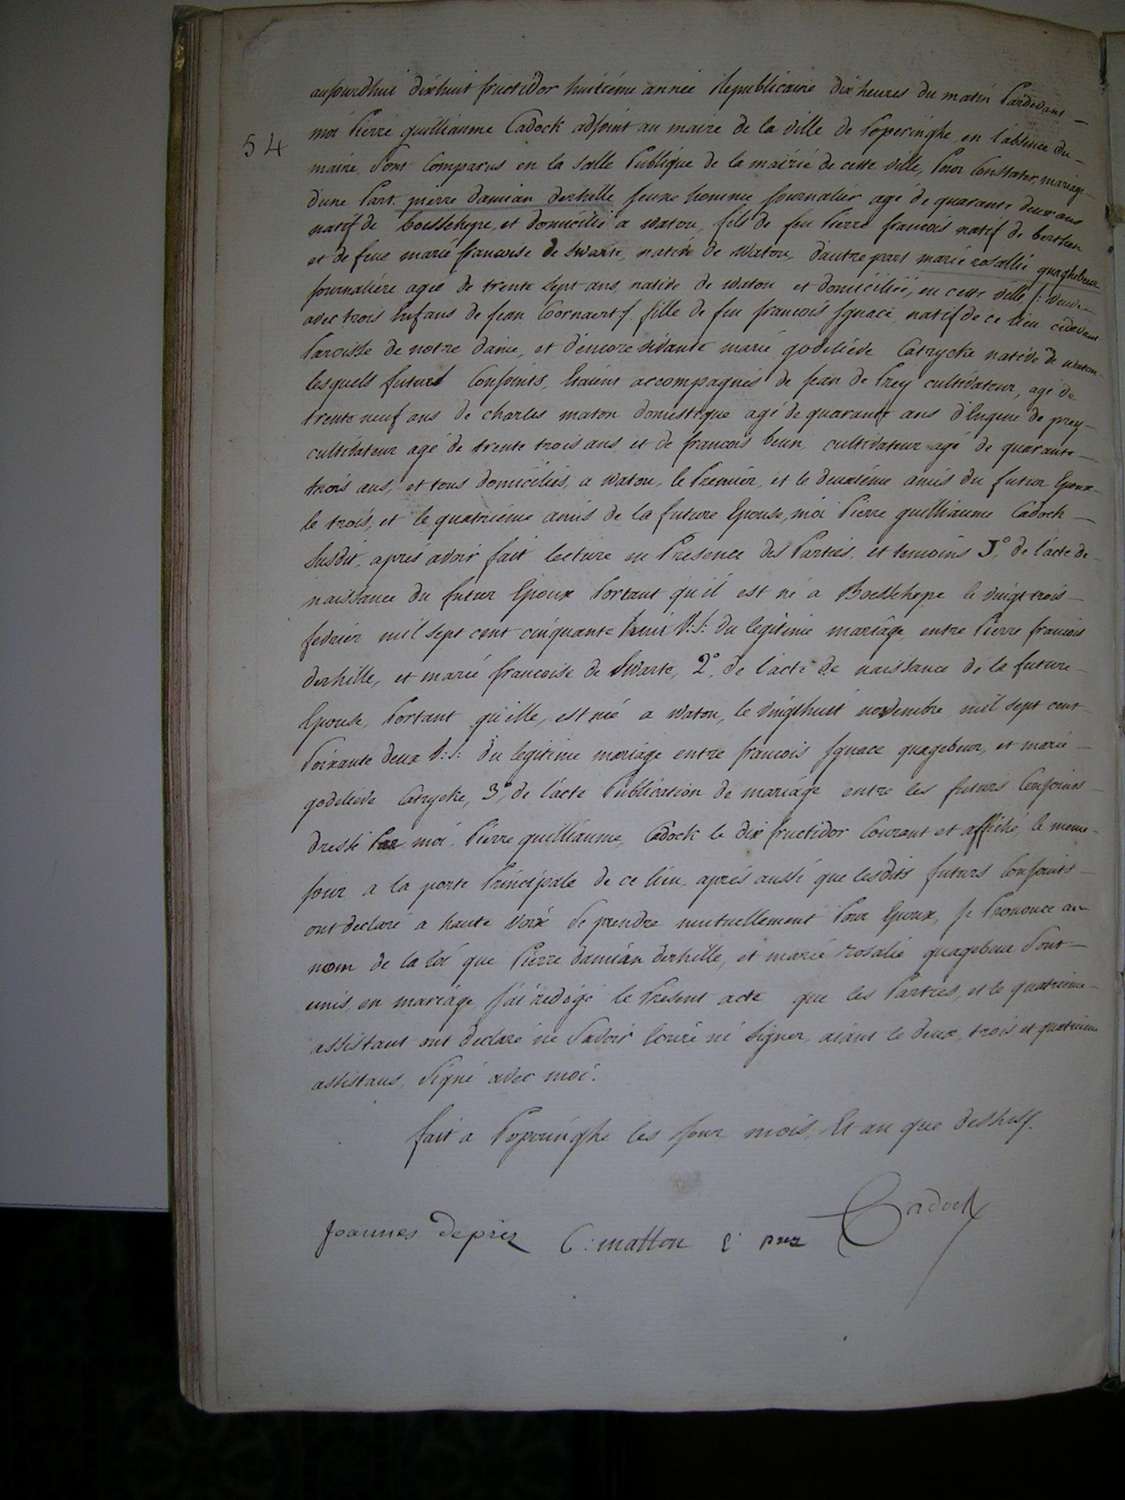 aujourdhui dixhuit fructidor huitième année Republicaine dix heures du matin Pardevant
54
moi Pierre guilliaume Cadock adjoint au maire de la ville de Poperinghe en l'absence du
maire, sont Comparus en la salle Publique de la mairie de cette ville, Pour Constater mariage
d'une Part pierre damian derhille jeune homme journalier agé de quarante deux ans
natif de boesschepe, et domicilié a watou, fils de feu Pierre francois natif de berthen
et de feue marie francoise de swarte, native de watou, d'autre part marie rosallie quaghebeur
journalière agée de trente sept ans native de watou et domiciliée, en cette ville
avec trois Enfans de jean Cornaert, fille de feu francois jgnace natif de ce lieu cidevant
Paroisse de notre dame, et d'encore vivante marie godelieve Catrycke native de watou
lesquels futurs Conjoints, Etaient accompagnés de jean de Prey cultivateur, agé de
trente neuf ans de charles maton domestique agé de quarante ans d'Eugene de prey
cultivateur agé de trente trois ans, et de francois beun cultivateur agé de quarante
trois ans, et tous domiciliés, a watou, le Premier, et le deuxième amis du futur Epoux
le trois, et le quatrième amis de la future Epouse, moi Pierre guilliaume Cadock
susdit, apres avoir fait lecture en Presence des Parties, et temoins 1°, de l'acte de
naissance du futur Epoux Portant qu'il est né a Boesschepe le vingt trois
fevrier mil sept cent cinquante huit V:S: du legitime mariage entre Pierre francois
derhille, et marie francoise de Swarte, 2°, de l'acte de naissance de la future
Epouse, Portant qu'elle, est née a watou, le vingthuit novembre mil sept cent
soixante deux V:S: du legitime mariage entre francois jgnace quagebeur, et marie
godelieve Catrycke, 3°, de l'acte Publication de mariage entre les futurs Conjoints
dressé Par moi Pierre guilliaume, Cadock le dix fructidor Courant et affiché, le meme
jour a la porte Principale de ce lieu, aprés aussi que lesdits futurs Conjoints
ont declaré a haute voix se prendre mutuellement Pour Epoux, je Prononce au
nom de la loi que Pierre damian derhille, et marie rosalie quagebeur sont
unis en mariage j'ai redigé le Present acte que les Parties, et le quatrieme
assistant ont declaré ne savoir écrire ni signer, aiant le deux, trois et quatrieme
assistans, signé avec moi.
fait a Poperinghe les jour mois, Et an que dessus.
Cadock
Joannes deprez C: matton E: prez